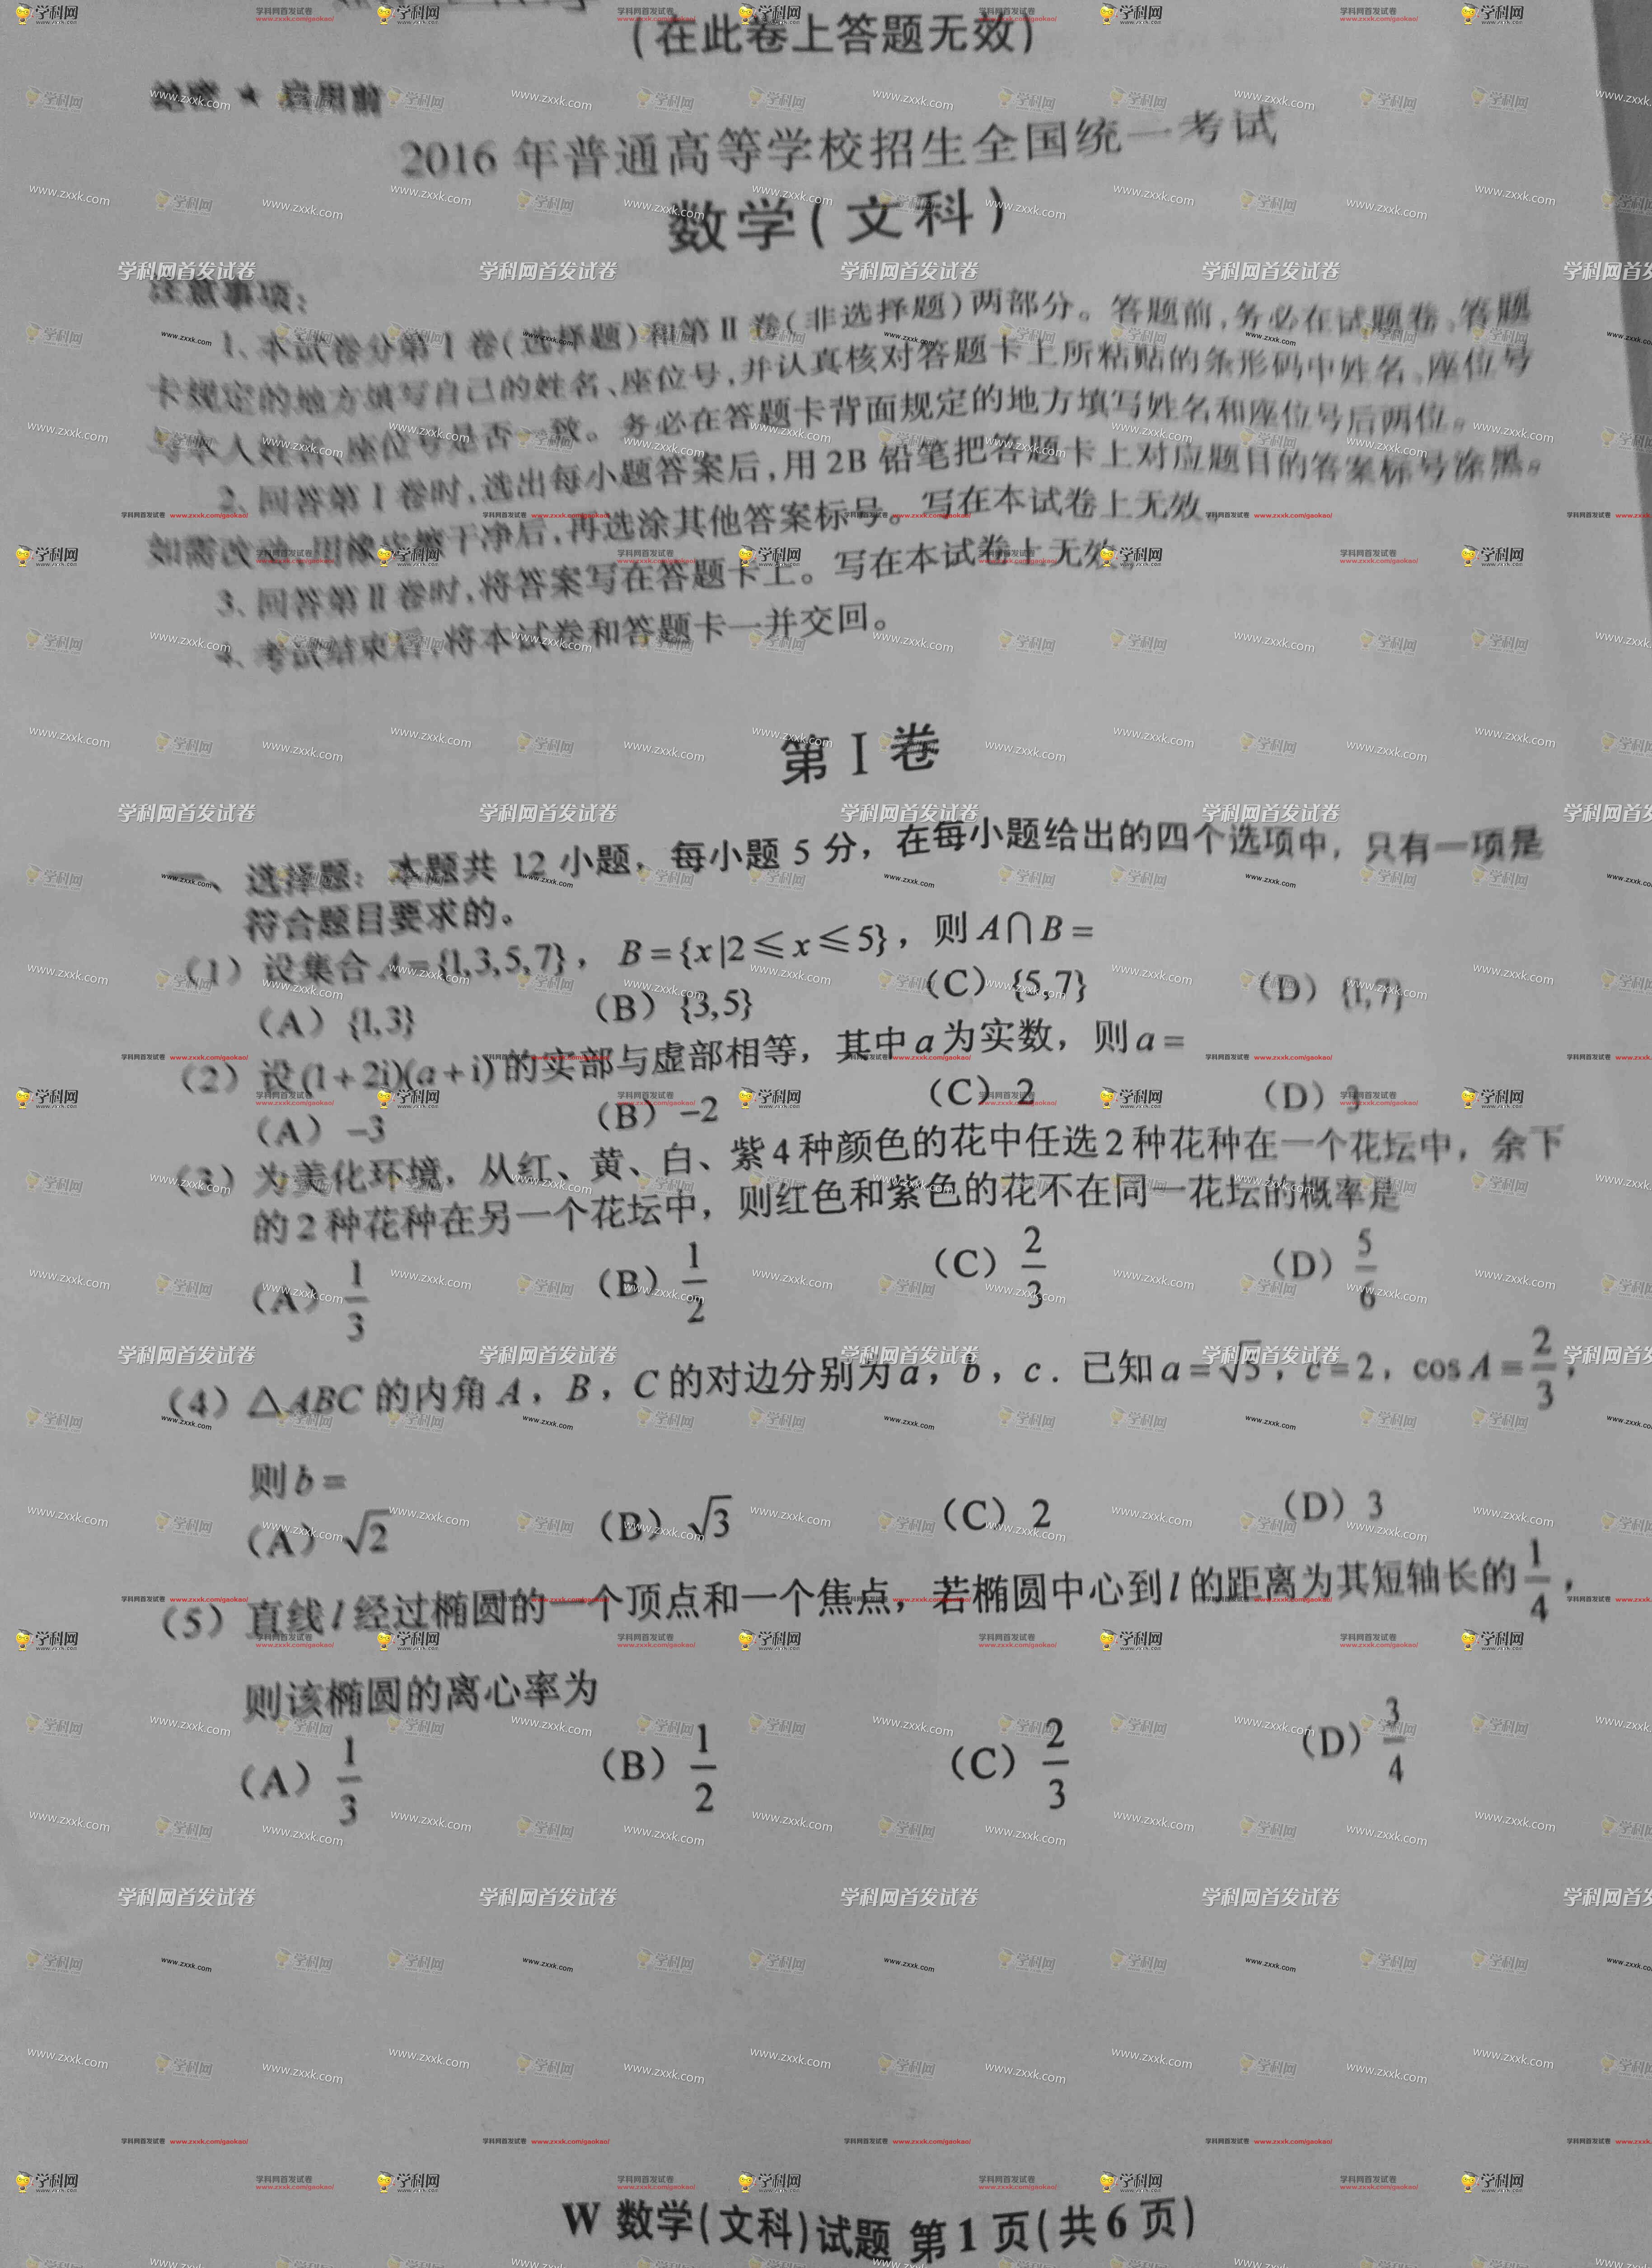 (在此卷上答题无效)
绝密 ★ 启用前
2016 年普通高等学校招生全国统一考试
数学(文科)
注意事项:
1、本试卷分第 I 卷(选择题)和第 II 卷(非选择题)两部分。答题前,务必在试题卷、答题
卡规定的地方填写自己的姓名、座位号,并认真核对答题卡上所粘贴的条形码中姓名、座位号
与本人姓名、座位号是否一致。务必在答题卡背面规定的地方填写姓名和座位号后两位。
2、回答第 I 卷时,选出每小题答案后,用 2B 铅笔把答题卡上对应题目的答案标号涂黑。
如需改动,用橡皮擦干净后,再选涂其他答案标号。写在本试卷上无效。
3、回答第 II 卷时,将答案写在答题卡上。写在本试卷上无效。
4、考试结束后,将本试卷和答题卡一并交回。
第 I 卷
一、选择题:本题共 12 小题,每小题 5 分,在每小题给出的四个选项中,只有一项是
符合题目要求的。
(1)设集合 A={1,3,5,7}, B={x|2≤x≤5},则 A∩B=
(A){1,3} (B){3,5} (C){5,7} (D){1,7}
(2)设(1+2i)(a+i)的实部与虚部相等,其中 a 为实数,则 a=
(A)-3 (B)-2 (C)2 (D)3
(3)为美化环境,从红、黄、白、紫 4 种颜色的花中任选 2 种花种在一个花坛中,余下
的 2 种花种在另一个花坛中,则红色和紫色的花不在同一花坛的概率是
(A)1/3 (B)1/2 (C)2/3 (D)5/6
(4)△ABC 的内角 A,B,C 的对边分别为 a,b,c.已知 a=√5,c=2,cos A=2/3,
则 b=
(A)√2 (B)√3 (C)2 (D)3
(5)直线 l 经过椭圆的一个顶点和一个焦点,若椭圆中心到 l 的距离为其短轴长的 1/4,
则该椭圆的离心率为
(A)1/3 (B)1/2 (C)2/3 (D)3/4
W 数学(文科)试题 第 1 页(共 6 页)